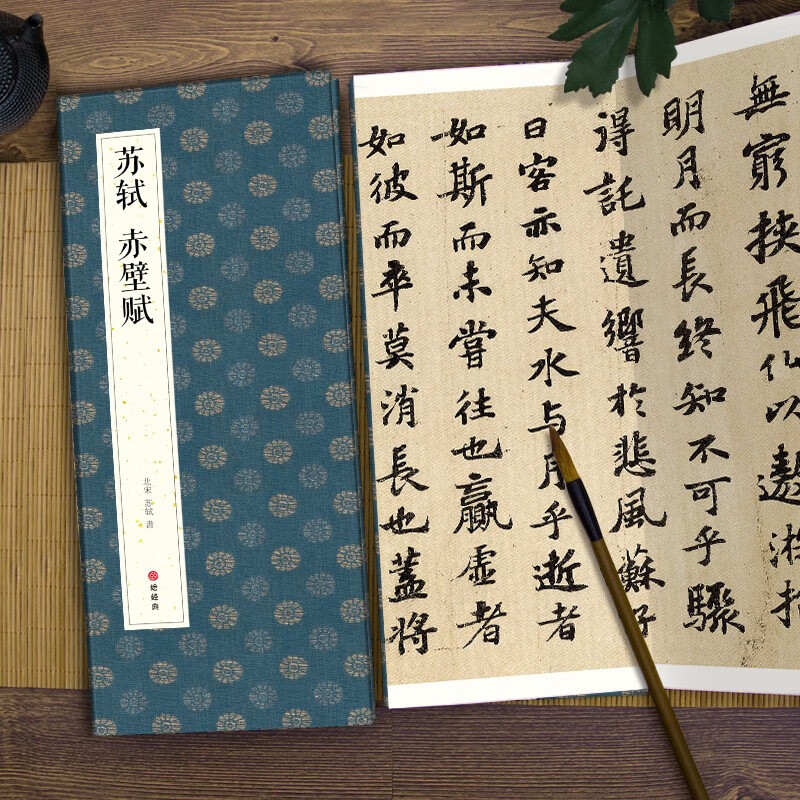 苏轼 赤壁赋
北宋 苏轼 書
经典
無窮挾飛仙以遨游
明月而長終知不可乎驟
得託遺響於悲風蘇子
曰客亦知夫水与月乎逝者
如斯而未嘗往也贏虛者
如彼而卒莫消長也蓋將